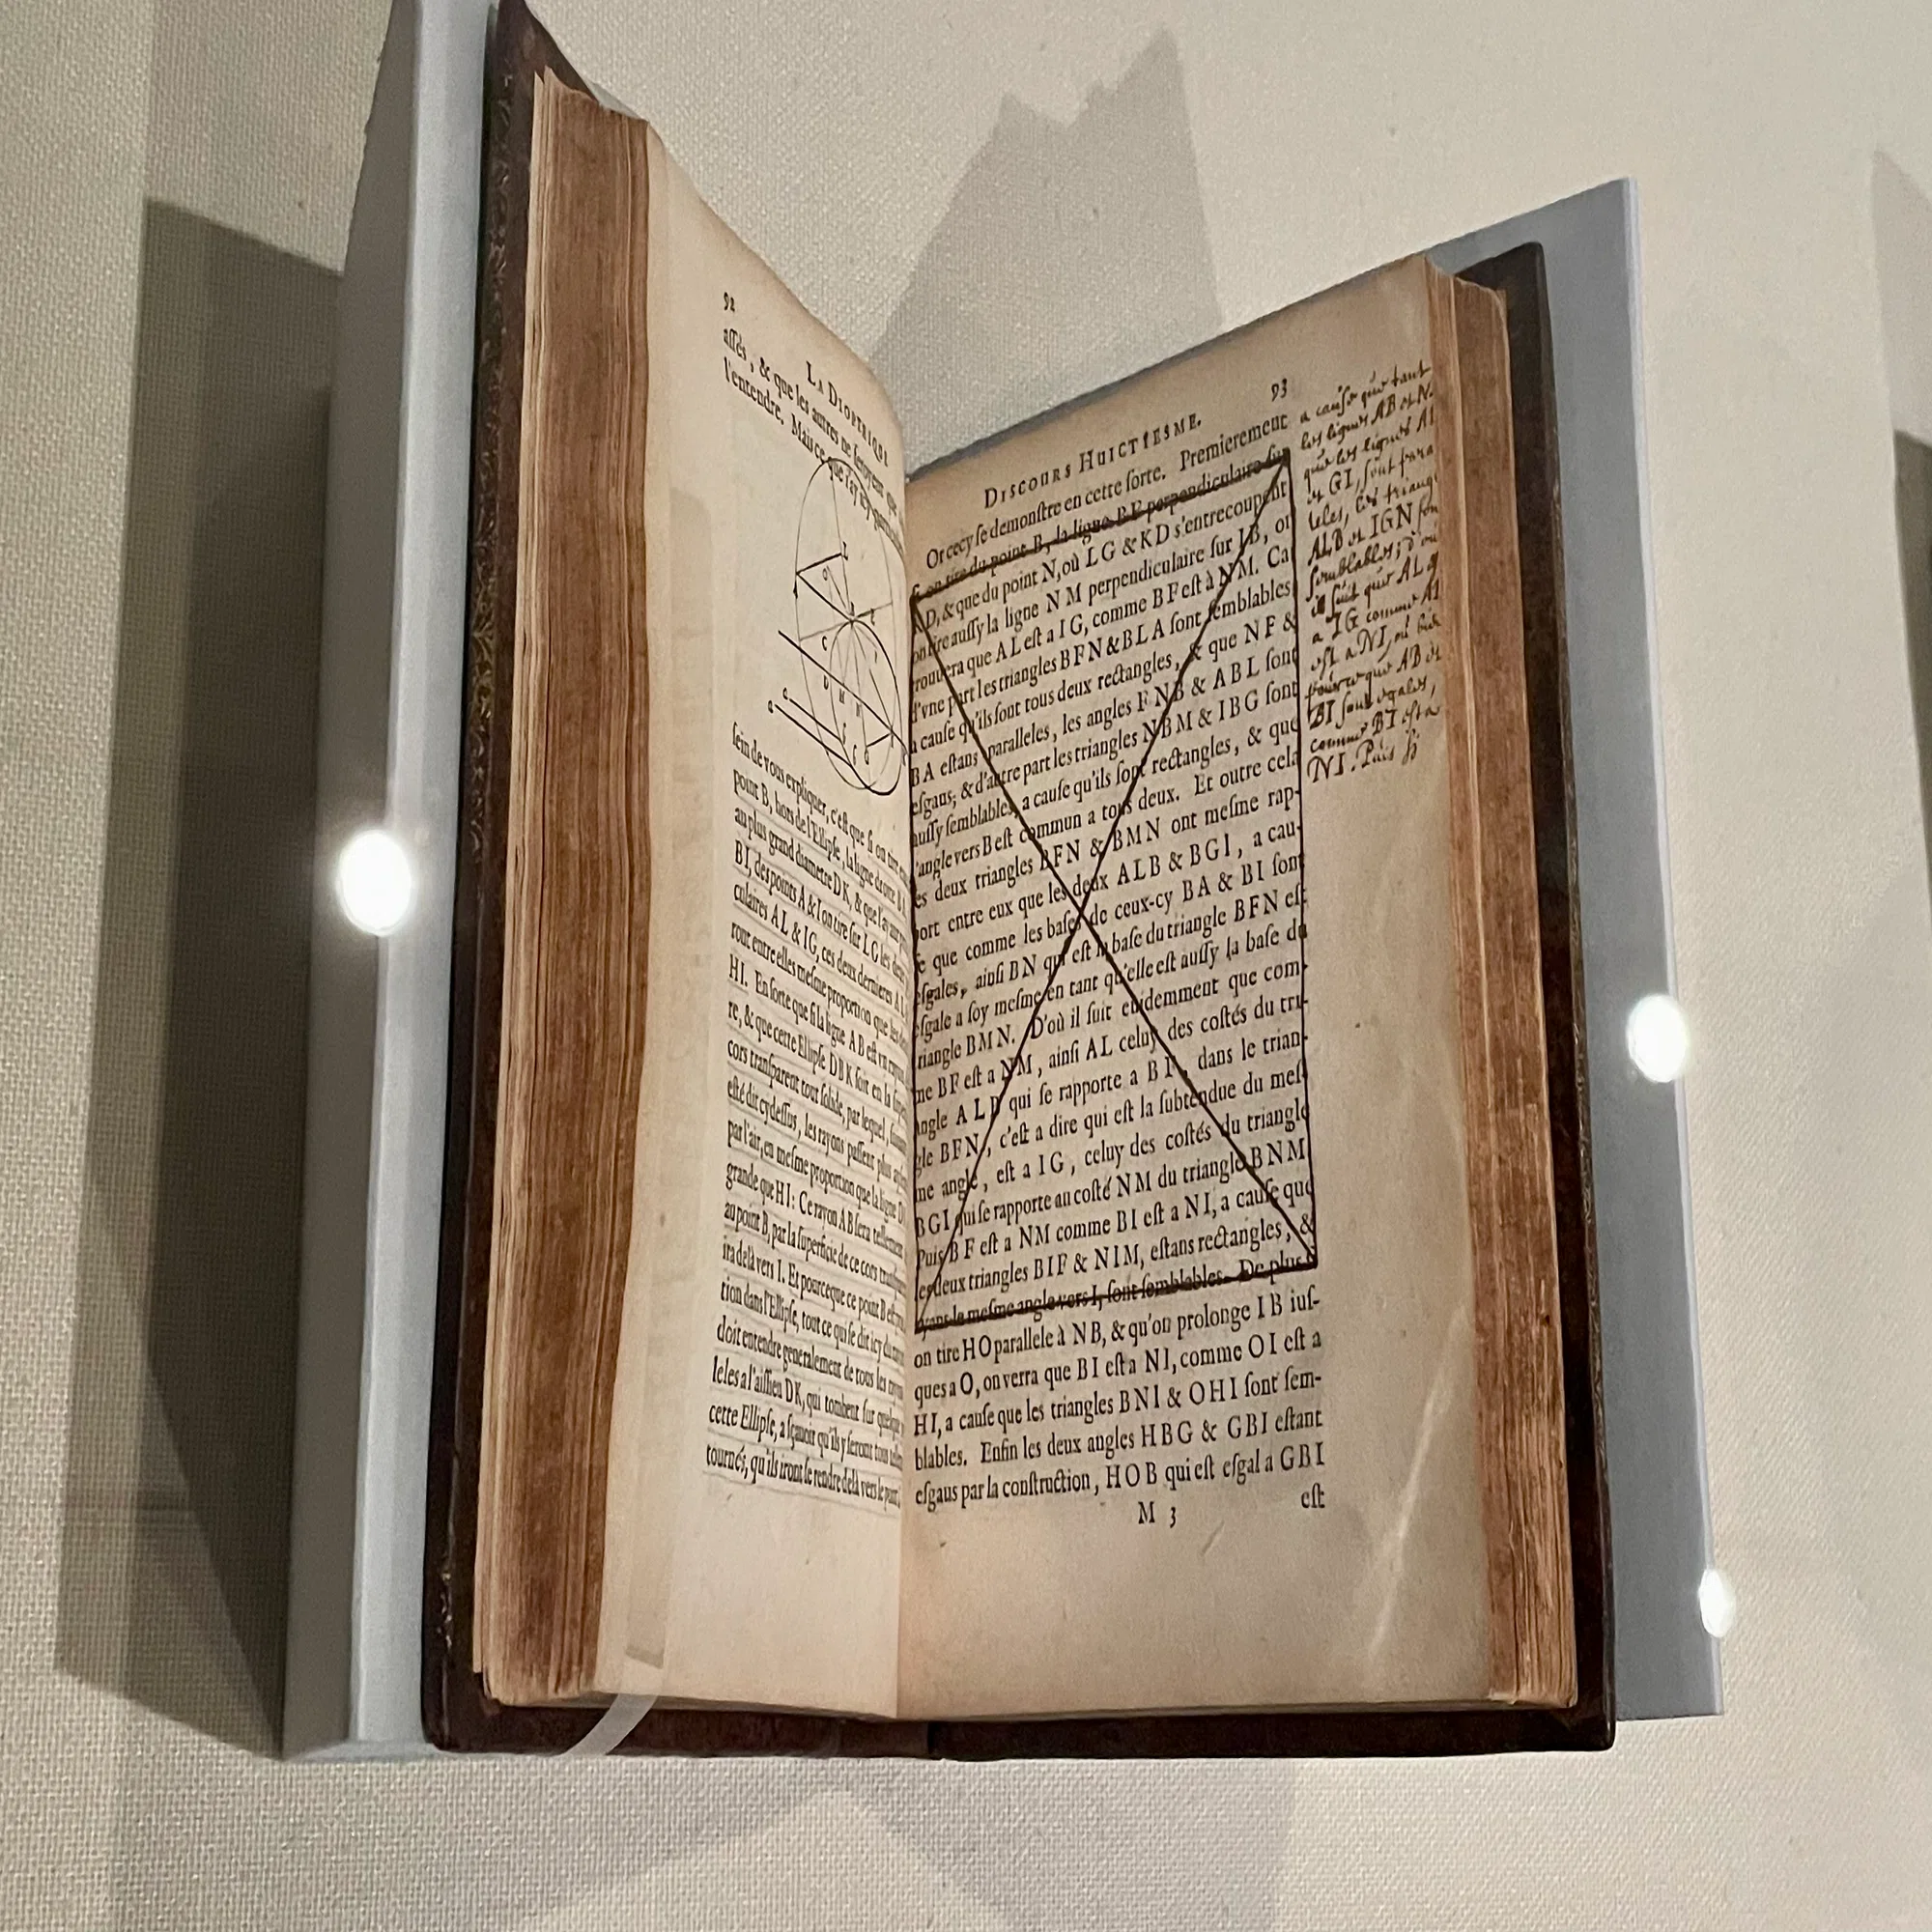 92
LA DIOPTRIQUE
aſſés, & que les autres ne ſeroyent que
l'entendre. Mais ce que i'ay icy
ſein de vous expliquer, c'eſt que ſi on tire
point B, hors de l'Ellipſe, la ligne droite B
au plus grand diametre DK, & que l'ayant
BI, des points A & I on tire ſur LG les deux
culaires AL & IG, ces deux dernieres AL
ront entre elles meſme proportion que les deux
HI. En ſorte que ſi la ligne AB eſt vn rayon
re, & que cette Ellipſe DBK ſoit en la ſuper
cors tranſparent tout ſolide, par lequel, ſuiuant
eſté dit cydeſſus, les rayons paſſent plus
par l'air, en meſme proportion que la ligne D
grande que HI: Ce rayon AB ſera tellement
au point B, par la ſuperficie de ce cors tranſparent
ira delà vers I. Et pourceque ce point B eſt
tion dans l'Ellipſe, tout ce qui ſe dit icy du rayon
doit entendre generalement de tous les rayons
leles a l'aiſſieu DK, qui tombent ſur quelque
cette Ellipſe, a ſçauoir qu'ils y ſeront tous
tournés, qu'ils iront ſe rendre delà vers le point
93
DISCOURS HUICTIESME.
Or cecy ſe demonſtre en cette ſorte. Premierement
ſi on tire du point B, la ligne BF perpendiculaire ſur
KD, & que du point N, où LG & KD s'entrecoupent
on tire auſſy la ligne NM perpendiculaire ſur IB, on
trouuera que AL eſt a IG, comme BF eſt à NM. Car
d'vne part les triangles BFN & BLA ſont ſemblables
a cauſe qu'ils ſont tous deux rectangles, & que NF &
BA eſtans paralleles, les angles FNB & ABL ſont
eſgaus; & d'autre part les triangles NBM & IBG ſont
auſſy ſemblables, a cauſe qu'ils ſont rectangles, & que
l'angle vers B eſt commun a tous deux. Et outre cela
les deux triangles BFN & BMN ont meſme rap-
port entre eux que les deux ALB & BGI, a cau-
ſe que comme les baſes de ceux-cy BA & BI ſont
eſgales, ainſi BN qui eſt la baſe du triangle BFN eſt
eſgale a ſoy meſme en tant qu'elle eſt auſſy la baſe du
triangle BMN. D'où il ſuit euidemment que com-
me BF eſt a NM, ainſi AL celuy des coſtés du tri-
angle ALB qui ſe rapporte a BF, dans le trian-
gle BFN, c'eſt a dire qui eſt la ſubtendue du meſ-
me angle, eſt a IG, celuy des coſtés du triangle
BGI qui ſe rapporte au coſté NM du triangle BNM
Puis BF eſt a NM comme BI eſt a NI, a cauſe que
les deux triangles BIF & NIM, eſtans rectangles, &
ayant le meſme angle vers I, ſont ſemblables. De plus ſi
on tire HO parallele à NB, & qu'on prolonge IB iuſ-
ques a O, on verra que BI eſt a NI, comme OI eſt a
HI, a cauſe que les triangles BNI & OHI ſont ſem-
blables. Enfin les deux angles HBG & GBI eſtant
eſgaus par la conſtruction, HOB qui eſt eſgal a GBI
M 3
eſt
a cauſe que tant
les lignes AB et N
que les lignes AL
et GI, ſont para
leles, les triang
ALB et IGN ſon
ſemblables; d'où
il ſuit que AL e
a IG comme A
eſt a NI, ou bie
pource que AB et
BI ſont egales,
comme BI eſt a
NI. Puis ſi